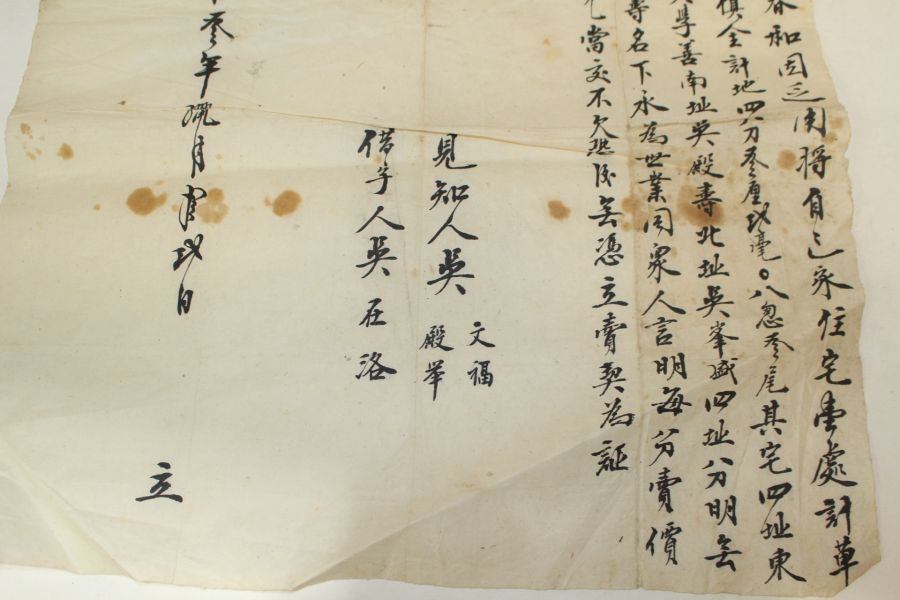 春和因乏用將自己家住宅壹處計草
俱全計地四分叁厘弐毫〇八忽叁尾其宅四址東
學善南址吳殿壽北址吳峯盛四址八分明厺
壽名下永為世業同衆人言明每分賣價
當交不欠恐後無憑立賣契為証
見知人吳文福殿举
借字人吳在洛
叁年臘月弐日
立